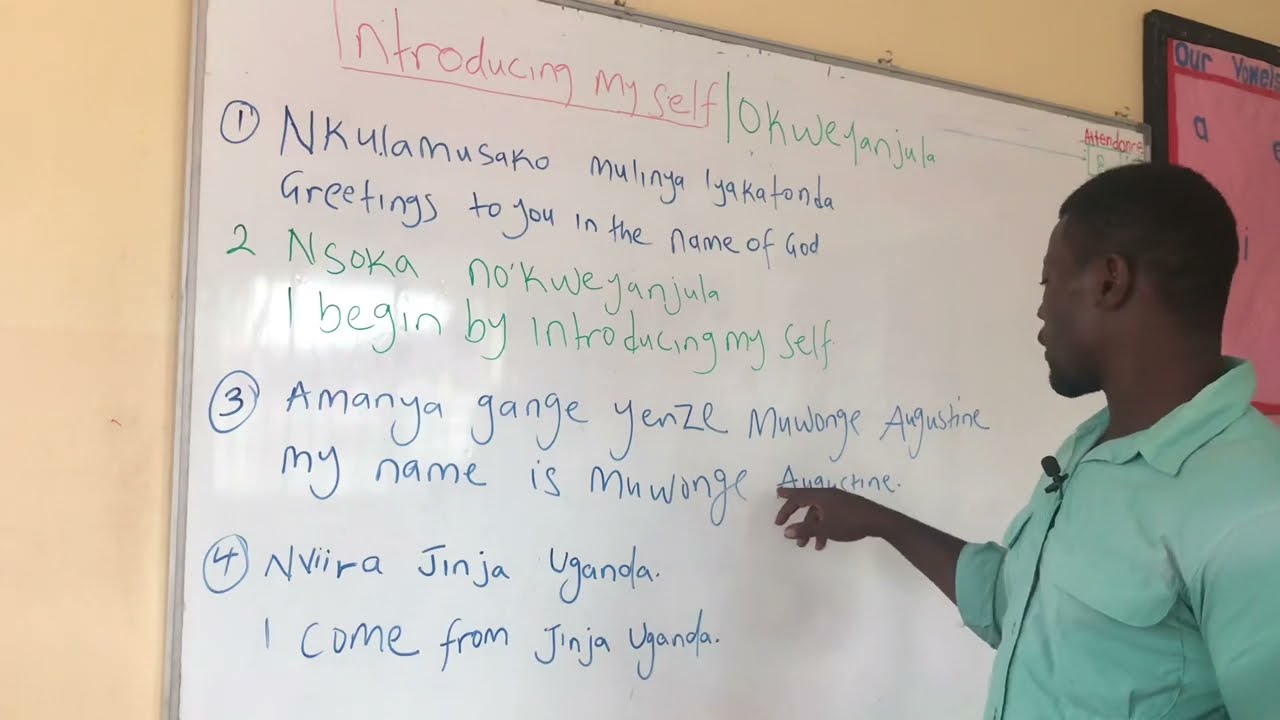 Introducing my self/Okweyanjula
① Nkulamusako mulinya lyakatonda
Greetings to you in the name of God
2 Nsoka no'kweyanjula
I begin by introducing my self.
③ Amanya gange yenze Muwonge Augustine
my name is Muwonge Augustine.
④ Nviira Jinja Uganda.
I come from Jinja Uganda.
Attendance
Our Vowels
a
i